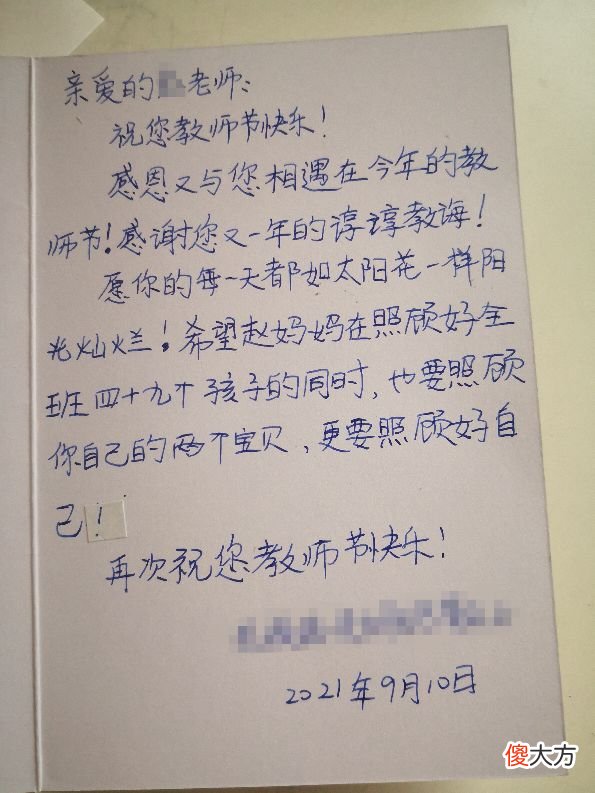 亲爱的 老师：
祝您教师节快乐！
感恩又与您相遇在今年的教
师节！感谢您又一年的谆谆教诲！
愿你的每一天都如太阳花一样阳
光灿烂！希望赵妈妈在照顾好全
班四十九个孩子的同时，也要照顾
你自己的两个宝贝、更要照顾好自
己！
再次祝您教师节快乐！
2021年9月10日
傻大方